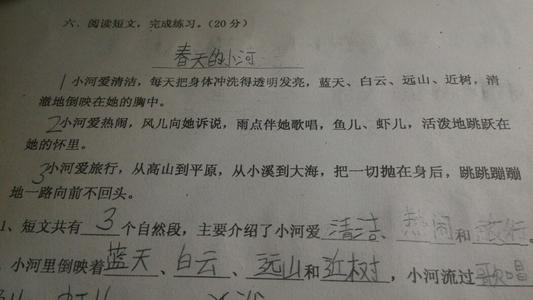 六、阅读短文，完成练习。(20分)
春天的小河
1小河爱清洁，每天把身体冲洗得透明发亮，蓝天、白云、远山、近树，清
澈地倒映在她的胸中。
2小河爱热闹，风儿向她诉说，雨点伴她歌唱，鱼儿、虾儿，活泼地跳跃在
她的怀里。
3小河爱旅行，从高山到平原，从小溪到大海，把一切抛在身后，跳跳蹦蹦
地一路向前不回头。
1、短文共有3个自然段，主要介绍了小河爱清洁、热闹和旅行。
小河里倒映着蓝天、白云、远山和近树，小河流过歌唱